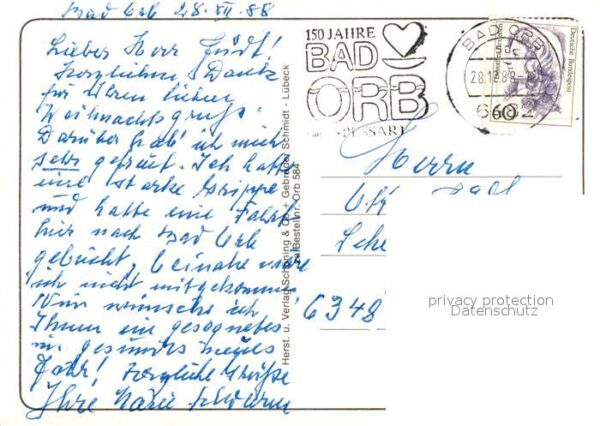 Bad Orb 28.XII.88
Lieber Herr
Herzlichen Dank
für Ihren lieben
Weihnachtsgruß.
Darüber hab' ich mich
sehr gefreut. Ich hatte
eine starke Grippe
und hatte eine Fahrt
hier nach Bad Orb
gebucht, beinahe wäre
ich nicht mitgekommen
Nun wünsche ich
Ihnen ein gesegnetes
u. gesundes neues
Jahr! Herzliche Grüße
Ihre
Herst. u. Verlag Schöning & Co. + Gebrüder Schmidt - Lübeck
zu Bestellnr. Orb 584
150 JAHRE
BAD
ORB
SPESSART
BAD ORB
28.12.88
Deutsche Bundespost
60
Herrn
6348
privacy protection
Datenschutz